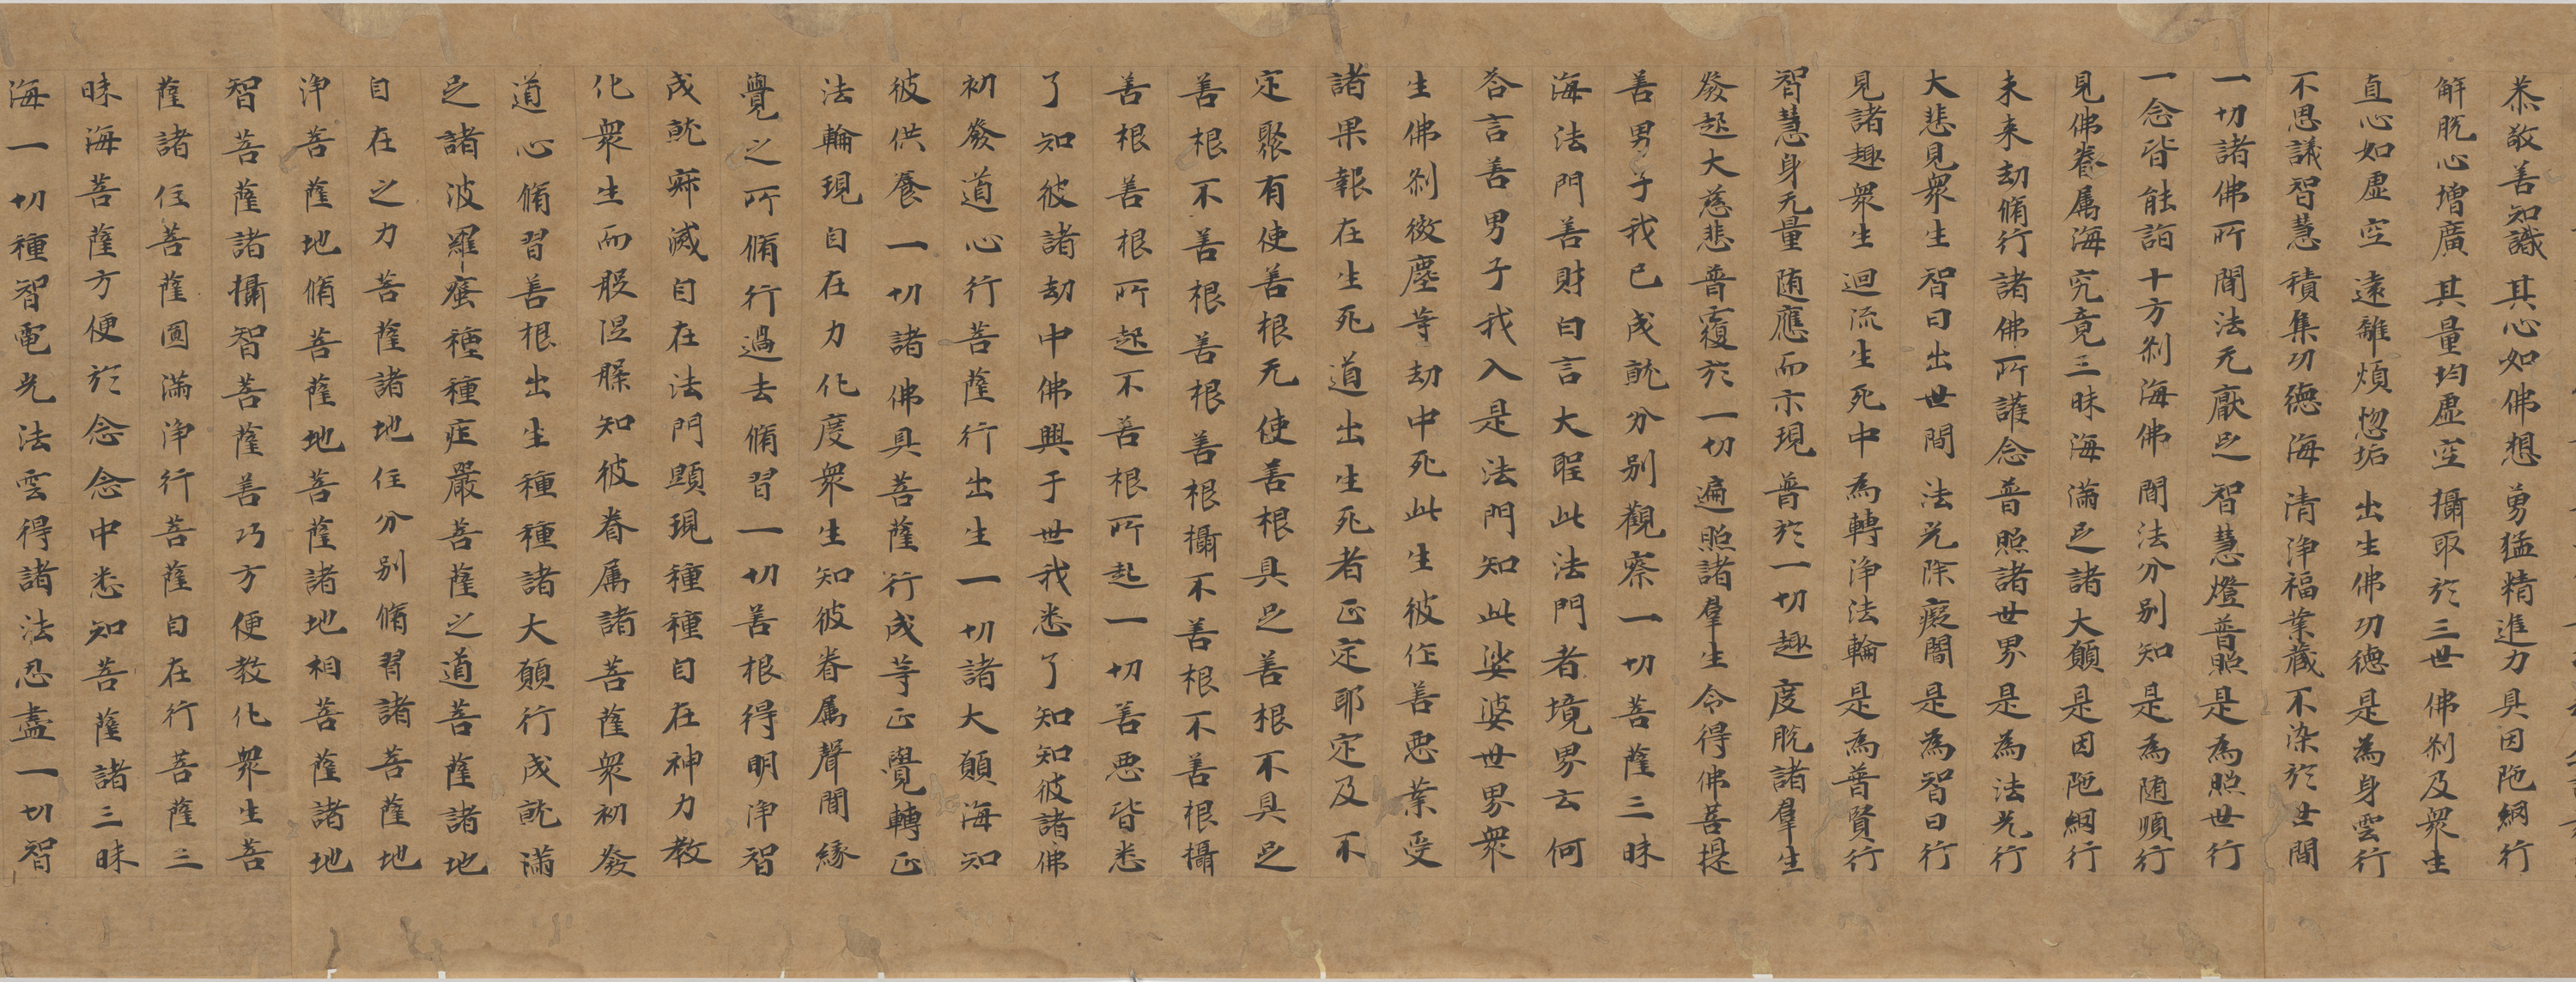 恭敬善知識 其心如佛想 勇猛精進力 具因陁網行
解脫心增廣 其量均虛空 攝取於三世 佛刹及衆生
直心如虛空 遠離煩惚垢 出生佛功德 是為身雲行
不思議智慧 積集功德海 清淨福業藏 不染於世間
一切諸佛所 聞法无厭足 智慧燈普照 是為照世行
一念皆能詣 十方刹海佛 聞法分别知 是為随順行
見佛眷属海 究竟三昧海 滿足諸大願 是因陁網行
未来劫脩行 諸佛所護念 普照諸世界 是為法光行
大悲見衆生 智日出世間 法光除癡闇 是為智日行
見諸趣衆生 迴流生死中 為轉淨法輪 是為普賢行
智慧身无量 随應而示現 普於一切趣 度脫諸羣生
發起大慈悲 普覆於一切 遍照諸羣生 令得佛菩提
善男子我已成就分别觀察一切菩薩三昧
海法門善財白言大聖此法門者境界云何
荅言善男子我入是法門知此娑婆世界衆
生佛刹微塵等劫中死此生彼作善惡業受
諸果報在生死道出生死者正定耶定及不
定聚有使善根无使善根具足善根不具足
善根不善根善根善根攝不善根不善根攝
善根善根所起不善根所起一切善惡皆悉
了知彼諸劫中佛興于世我悉了知知彼諸佛
初發道心行菩薩行出生一切諸大願海知
彼供養一切諸佛具菩薩行成等正覺轉正
法輪現自在力化度衆生知彼眷属聲聞緣
覺之所脩行過去脩習一切善根得明淨智
成就寂滅自在法門顯現種種自在神力教
化衆生而般涅槃知彼眷属諸菩薩衆初發
道心脩習善根出生種種諸大願行成就滿
足諸波羅蜜種種莊嚴菩薩之道菩薩諸地
自在之力菩薩諸地住分别脩習諸菩薩地
淨菩薩地脩菩薩地菩薩諸地相菩薩諸地
智菩薩諸攝智菩薩善巧方便教化衆生菩
薩諸住菩薩圓滿淨行菩薩自在行菩薩三
昧海菩薩方便於念念中悉知菩薩諸三昧
海一切種智電光法雲得諸法忍盡一切智